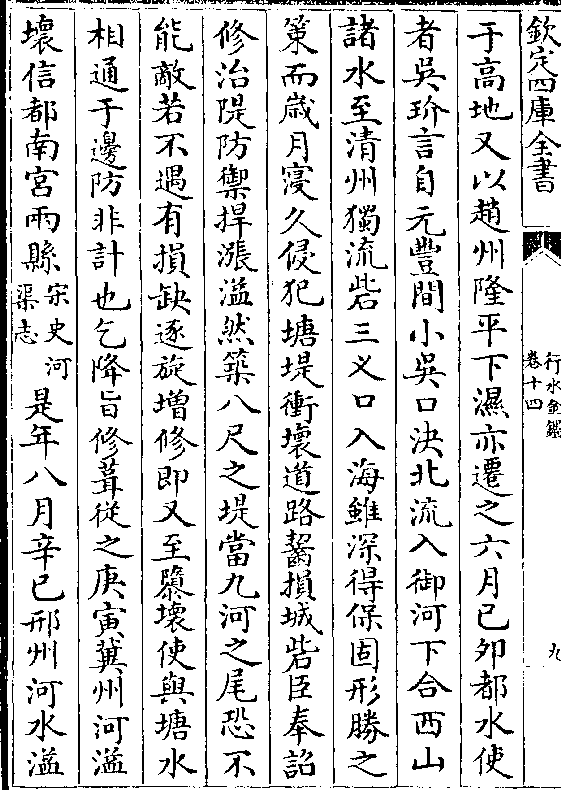 欽定四庫全書
行水金鑑
卷十四
九
于高地又以趙州隆平下濕亦遷之六月己夘都水使
者吳玠言自元豐間小吳口決北流入御河下合西山
諸水至清州獨流砦三义口入海雖深得保固形勝之
策而歳月寖久侵犯塘堤衝壊道路齧損城砦臣奉詔
修治隄防禦捍漲溢然築八尺之堤當九河之尾恐不
能敵若不遇有損缺逐旋增修即又至隳壊使與塘水
相通于邊防非計也乞降旨修葺從之庚寅冀州河溢
壊信都南宮兩縣宋史河渠志是年八月辛巳邢州河水溢